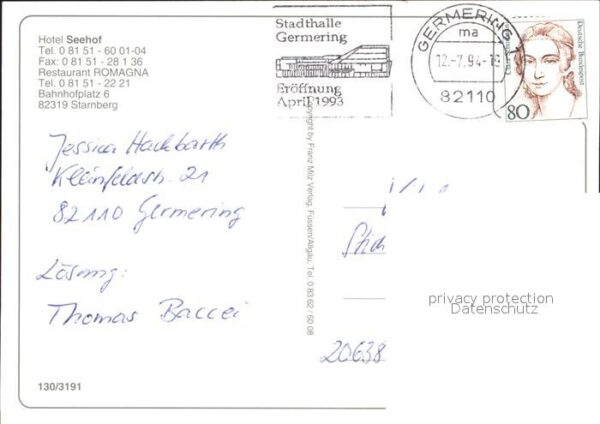 Hotel Seehof
Tel. 0 81 51 - 60 01-04
Fax: 0 81 51 - 28 1 36
Restaurant ROMAGNA
Tel. 0 81 51 - 22 21
Bahnhofplatz 6
82319 Starnberg
Stadthalle
Germering
Eröffnung
April 1993
GERMERING 1
ma
12.-7.94-18
82110
Deutsche Bundespost
80
Jessica Hackbarth
Kleinfeldstr. 21
82110 Germering
Lösung:
Thomas Baccei
Copyright by Franz Milz Verlag, Füssen/Allgäu, Tel. 0 83 62 / 60 08
20638
privacy protection
Datenschutz
130/3191